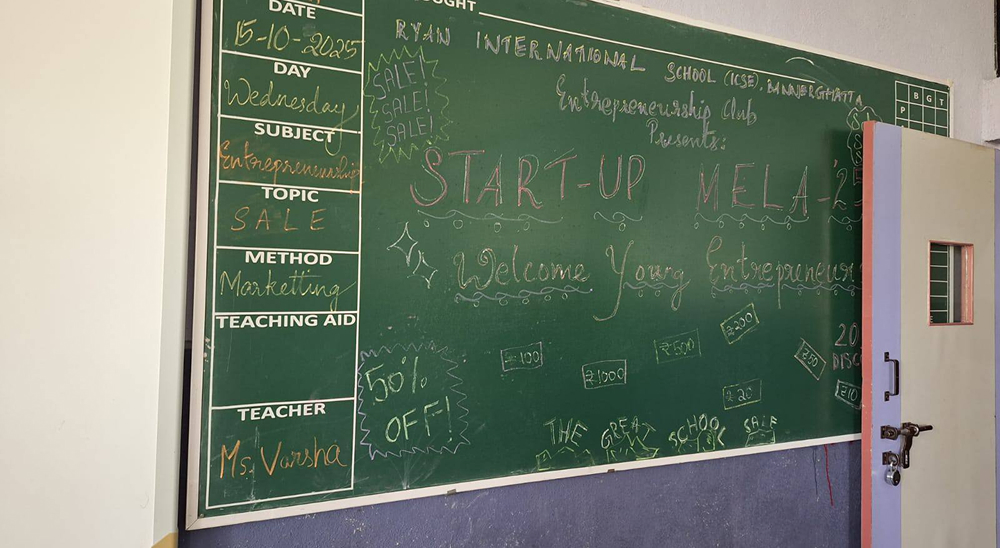 DATE
15-10-2025
DAY
Wednesday
SUBJECT
Entrepreneurship
TOPIC
SALE
METHOD
Marketting
TEACHING AID
TEACHER
Ms. Varsha
RYAN INTERNATIONAL SCHOOL (ICSE), BANNERGHATTA
Entrepreneurship Club
Presents:
SALE!
SALE!
SALE!
START-UP MELA-'25
Welcome Young Entrepreneur
50%
OFF!
₹100
₹1000
₹500
₹200
₹50
₹20
₹10
20
DISC
THE GREAT SCHOOL SALE
B G T
P